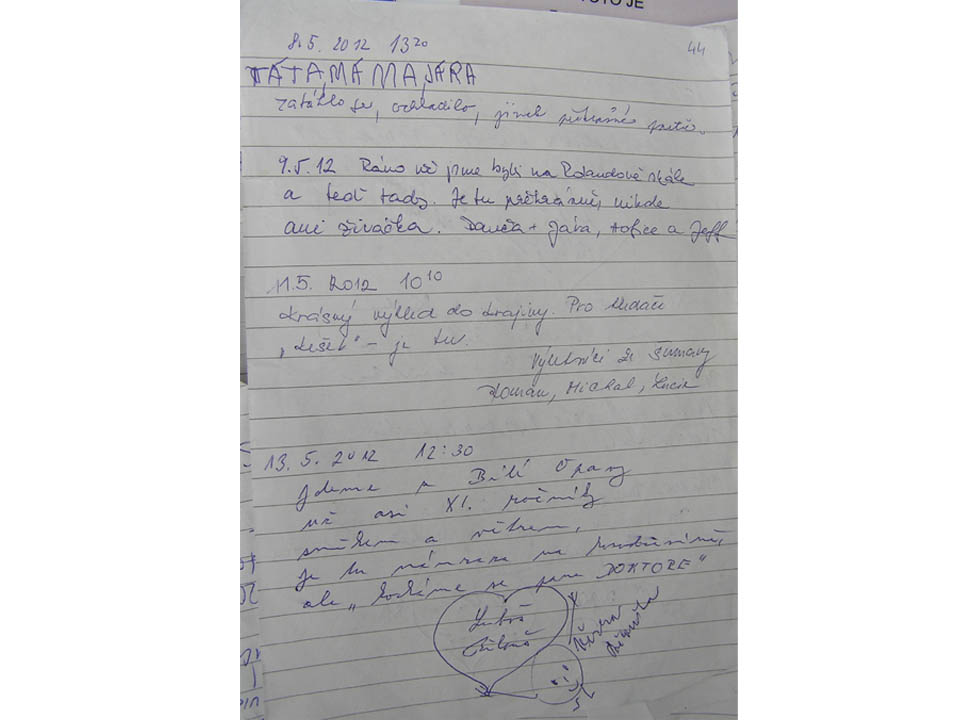 TOTO JE
44
8.5. 2012 13²⁰
TÁTA, MÁMA, JÁRA
zatáhlo se, ochladilo, jinak překrásné
9.5.12 Ráno už jsme byli na Rolandově skále
a teď tady. Je tu překrásně, nikde
ani živáčka. Danča + Jára, Žofice a Jeff
11.5. 2012 10¹⁰
Krásný výhled do krajiny. Pro hledače
„kešek" - je tu.
Výletníci ze Šumavy
Roman, Michal, Lucie
13.5. 2012 12:30
Jdeme k Bílé Opavy
už asi XI. ročník
sněhem a větrem,
je tu námraza na
ale „kocháme se pane DOKTORE"
Luboš